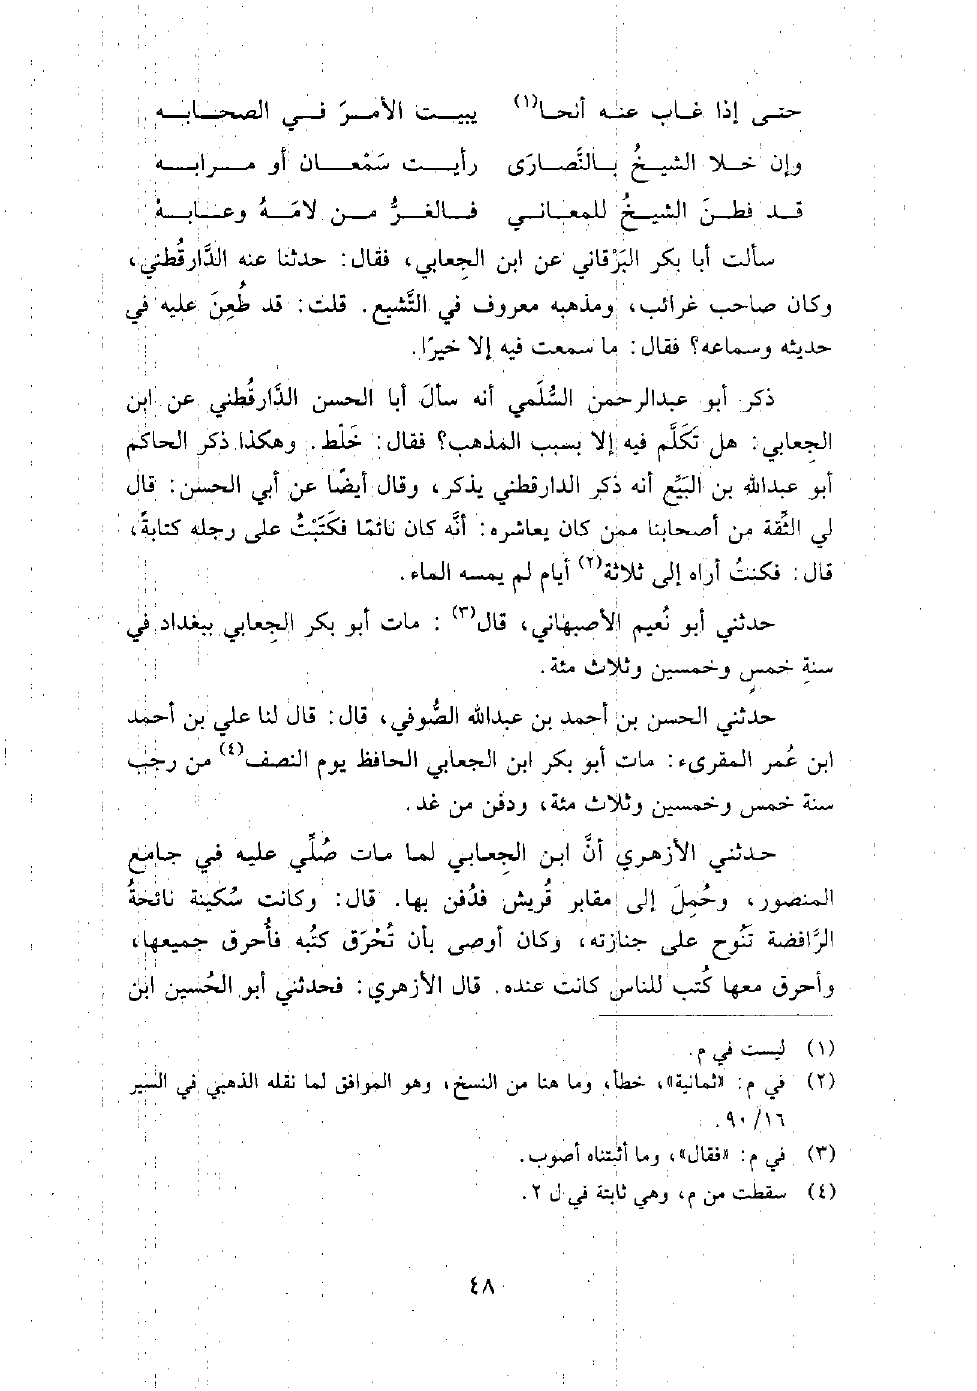 حتى إذا غاب عنه أنحا(١) يبيت الأمرّ في الصحابه
وإن خلا الشيخُ بالنَّصارَى رأيت سَمْعان أو مرابه
قد فطنَ الشيخُ للمعاني فالغرُّ من لامَهُ وعابهُ
سألت أبا بكر البَرْقاني عن ابن الجِعابي، فقال: حدثنا عنه الدَّارقُطني،
وكان صاحب غرائب، ومذهبه معروف في التَّشيع. قلت: قد طُعِنَ عليه في
حديثه وسماعه؟ فقال: ما سمعت فيه إلا خيرًا.
ذكر أبو عبدالرحمن السُّلَمي أنه سألَ أبا الحسن الدَّارقُطني عن ابن
الجِعابي: هل تَكَلَّم فيه إلا بسبب المذهب؟ فقال: خَلَّط. وهكذا ذكر الحاكم
أبو عبدالله بن البَيِّع أنه ذكر الدارقطني يذكر، وقال أيضًا عن أبي الحسن: قال
لي الثِّقة من أصحابنا ممن كان يعاشره: أنَّه كان نائمًا فكَتَبْتُ على رجله كتابةً،
قال: فكنتُ أراه إلى ثلاثة(٢) أيام لم يمسه الماء.
حدثني أبو نُعيم الأصبهاني، قال(٣): مات أبو بكر الجِعابي ببغداد في
سنةِ خمسٍ وخمسين وثلاث مئة.
حدثني الحسن بن أحمد بن عبدالله الصُّوفي، قال: قال لنا علي بن أحمد
ابن عُمر المقرىء: مات أبو بكر ابن الجعابي الحافظ يوم النصف(٤) من رجب
سنة خمس وخمسين وثلاث مئة، ودفن من غد.
حدثني الأزهري أنَّ ابن الجِعابي لما مات صُلِّي عليه في جامع
المنصور، وحُمِلَ إلى مقابر قُريش فدُفن بها. قال: وكانت سُكينة نائحةُ
الرَّافضة تَنُوح على جنازته، وكان أوصى بأن تُحْرَق كتُبه فأُحرق جميعها،
وأحرق معها كُتب للناس كانت عنده. قال الأزهري: فحدثني أبو الحُسين ابن
(١) ليست في م.
(٢) في م: «ثمانية»، خطأ، وما هنا من النسخ، وهو الموافق لما نقله الذهبي في السير
١٦/ ٩٠.
(٣) في م: «فقال»، وما أثبتناه أصوب.
(٤) سقطت من م، وهي ثابتة في ل ٢.
٤٨